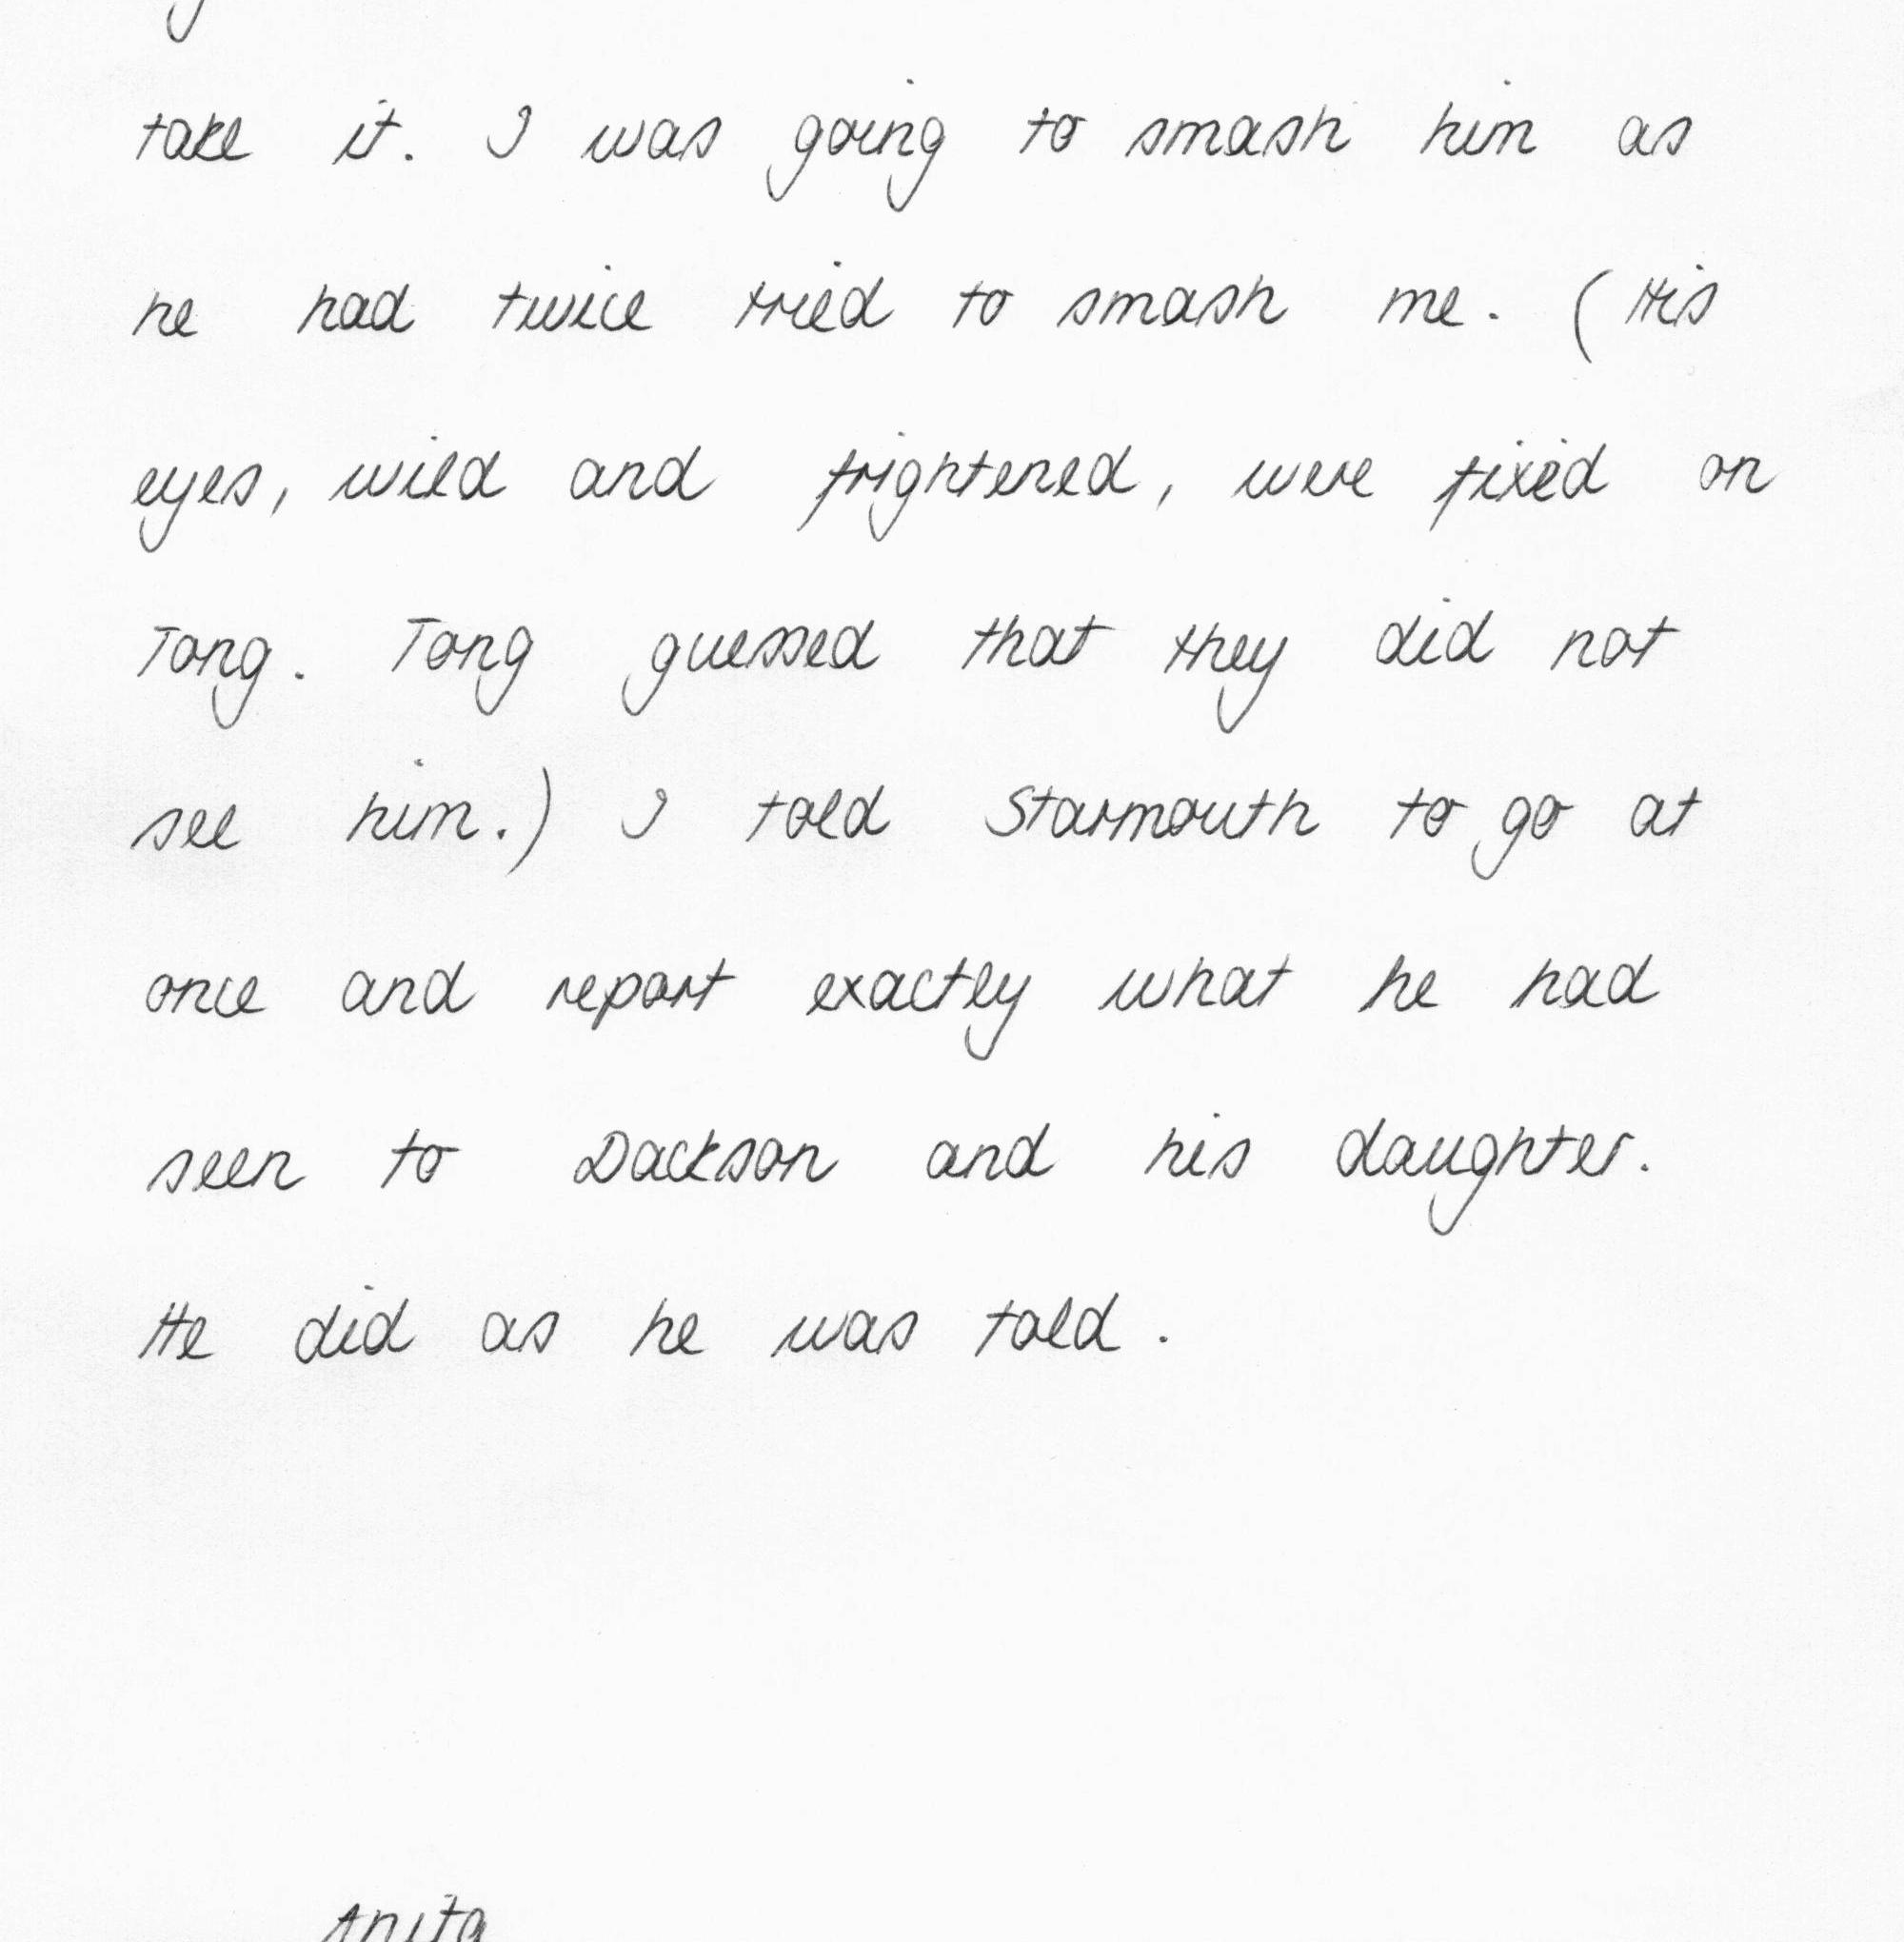 take it. I was going to smash him as
he had twice tried to smash me. (His
eyes, wild and frightened, were fixed on
Tong. Tong guessed that they did not
see him.) I told Starmouth to go at
once and report exactly what he had
seen to Dackson and his daughter.
He did as he was told.
Anita